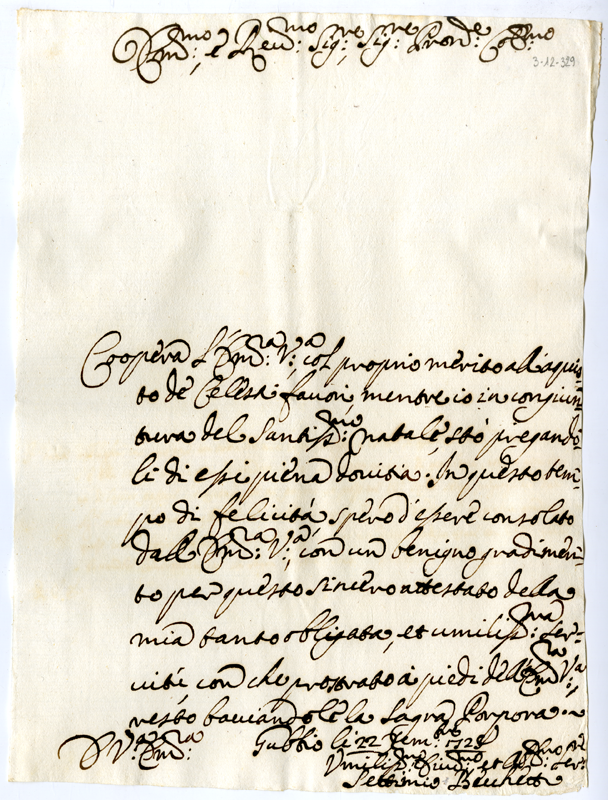 Em:mo, e Reu:mo Sig:re, Sig:re Pron:e Col:mo
3-12-329
Coopera L'Em:a V:a col proprio merito all'aquis-
to de Celesti fauori, mentre io in congiun-
tura del Santiss:mo Natale, stò pregando-
li di essi piena douitia. In questo tem-
po di felicità, spero d'essere consolato
dall'Em:a V:a, con un benigno gradimen-
to per questo sincero attestato della
mia tanto obligata, et umiliss:ma Ser-
uitù, con che prostrato a piedi dell'Em:a V:a,
resto baciandole la Sagra Porpora.
D V:a Em:a
Gubbio li 22 Xem:re 1728
Vmilis:mo Diuo:mo et Obl:mo ser:re
Settimio Becchetti